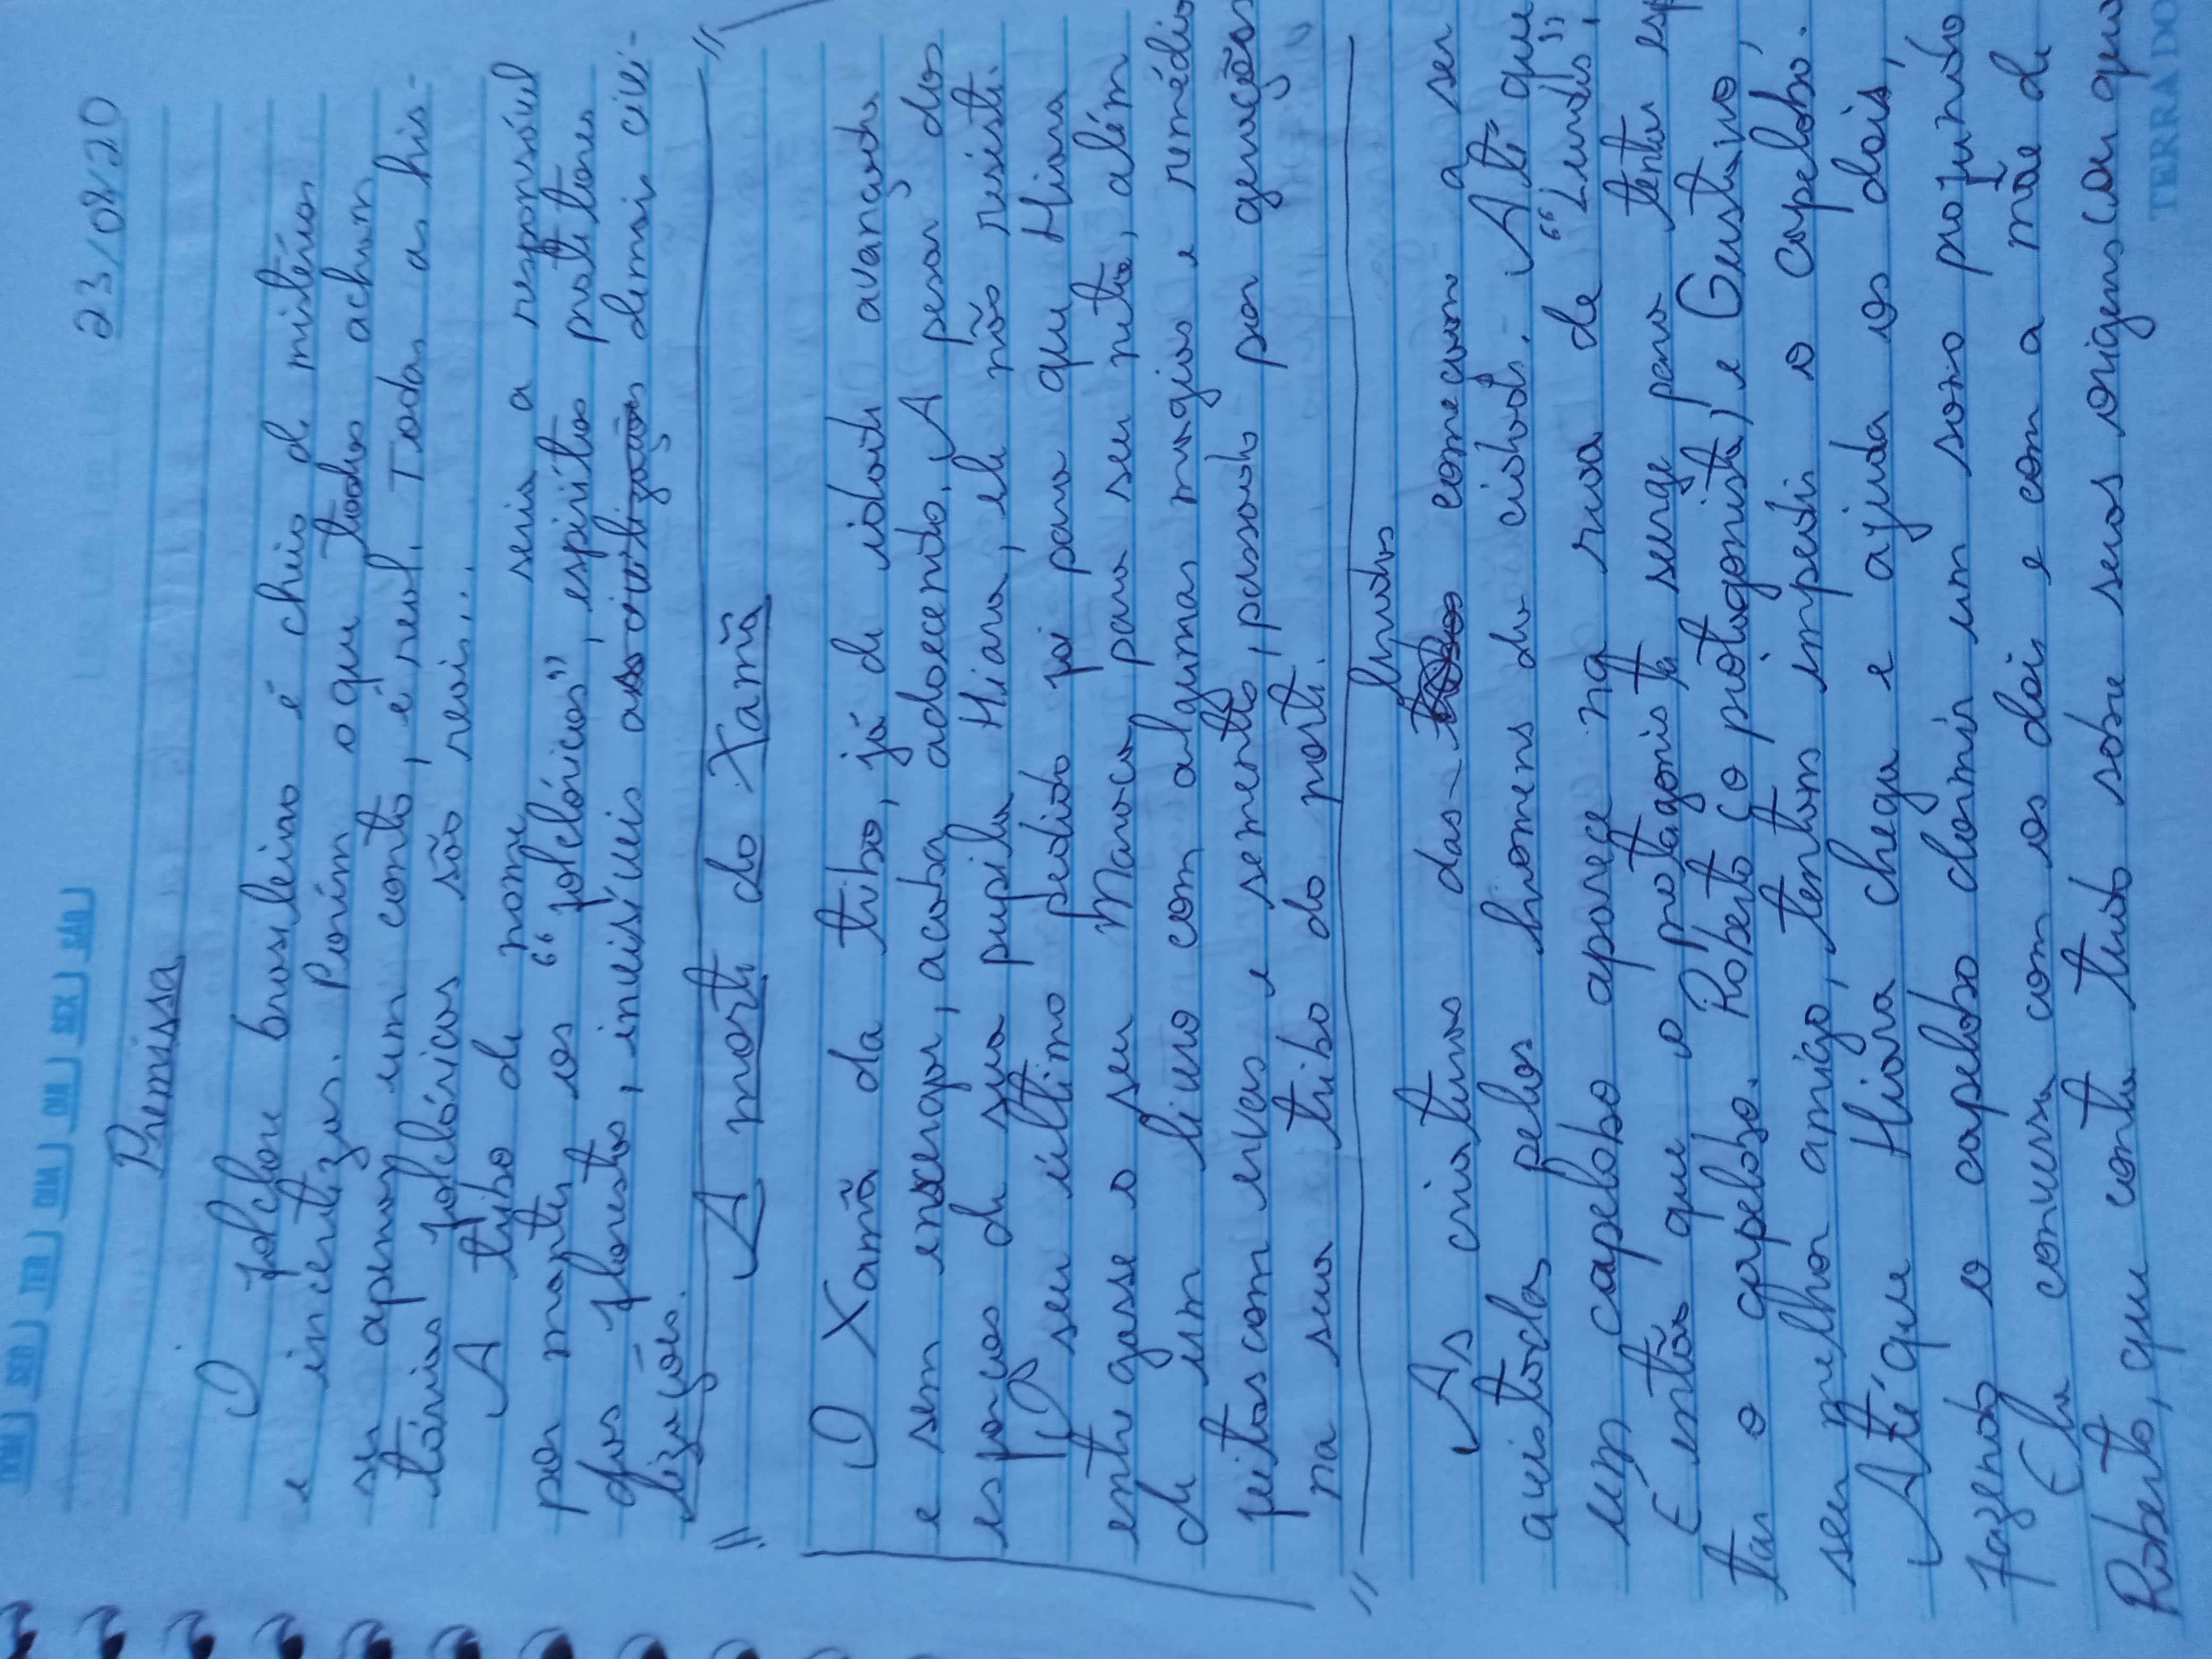 DOM SEG TER QUA QUI SEX SÁB
23/08/20
Premissa
O folclore brasileiro é cheio de mistérios
e incertezas. Porém o que todos acham
ser apenas um conto, é real. Todas as his-
tórias folclóricas são reais...
A tribo de nome seria a responsável
por manter os "folclóricos", espíritos protetores
das florestas, invisíveis aos civilizações demais civi-
lizações.
" A morte do Xamã "
O Xamã da tribo, já de idade avançada
e sem enxergar, acaba adoecendo. A pesar dos
esforços de sua pupila Hiara, ele não resiste.
O seu último pedido foi para que Hiara
entregasse o seu Maraca para seu neto, além
de um livro com algumas magias e remédios
feitos com ervas e sementes, passado por gerações
na sua tribo do norte.
lendas
" As criaturas das comecam a ser
avistadas pelos homens da cidade. Até que
um capelobo aparece na rua de "Lendas",
E então que o protagonista surge para tentar esp
tar o capelobo. Roberto (o protagonista) e Gustavo,
seu melhor amigo, tentam impedir o capelobo.
Até que Hiara chega e ajuda os dois,
fazendo o capelobo dormir um sono profundo
Ela conversa com os dois e com a mãe de
Roberto, que conta tudo sobre suas origens (ou quo
TERRA DO